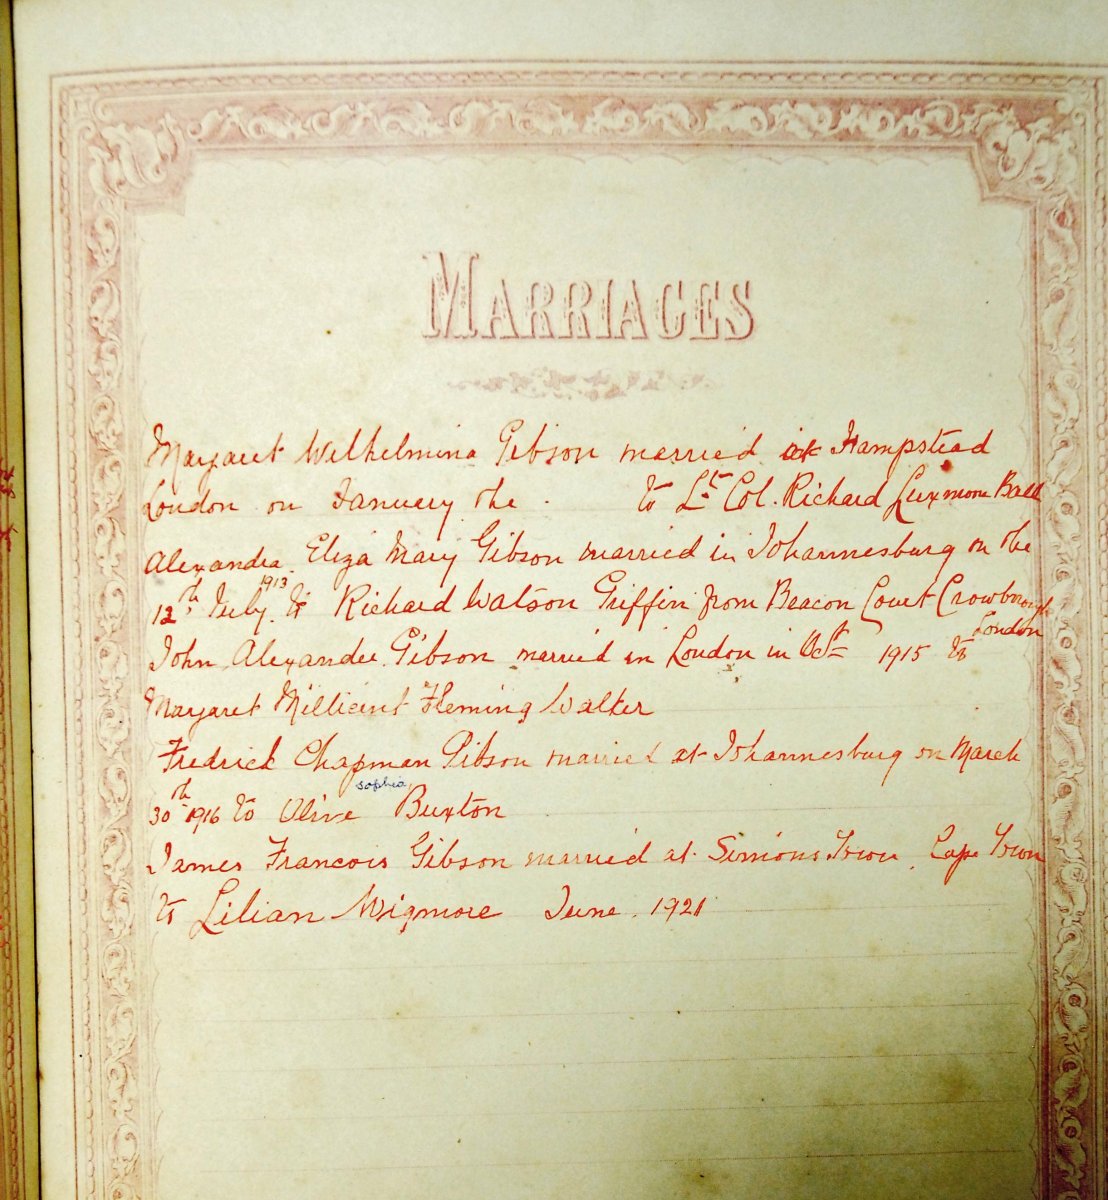 MARRIAGES
Margaret Wilhelmina Gibson married at Hampstead
London on January the to Lt. Col. Richard Luxmore Ball
Alexandra Eliza Mary Gibson married in Johannesburg on the
12th July 1913 to Richard Watson Griffin from Beacon Court Crowborough
London
John Alexander Gibson married in London in Oct 1915 to
Margaret Millicent Fleming Walker
Fredrick Chapman Gibson married at Johannesburg on March
30th 1916 to Olive Sophia Buxton
James Francois Gibson married at Simons Town Cape Town
to Lilian Wigmore June 1921